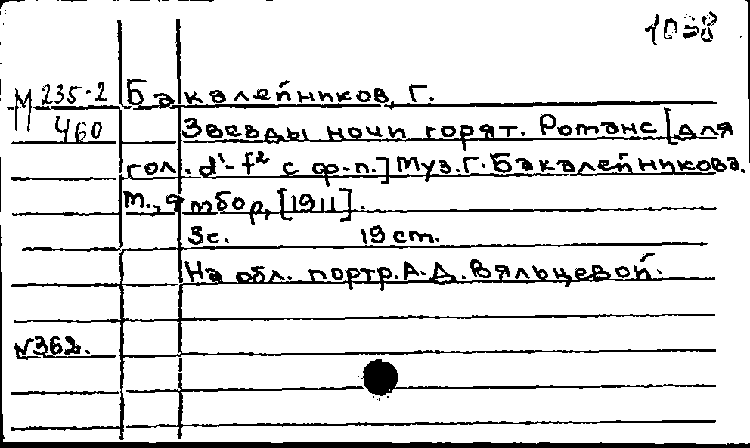 1038
М 235-2 Бакалейников, Г.
460 Звезды ночи горят. Романс [для
гол. d¹-f² с ф.-п.] Муз. Г. Бакалейникова.
М.,
[1911].
3с. 19 cm.
На обл. портр. А.Д. Вяльцевой.
N362.